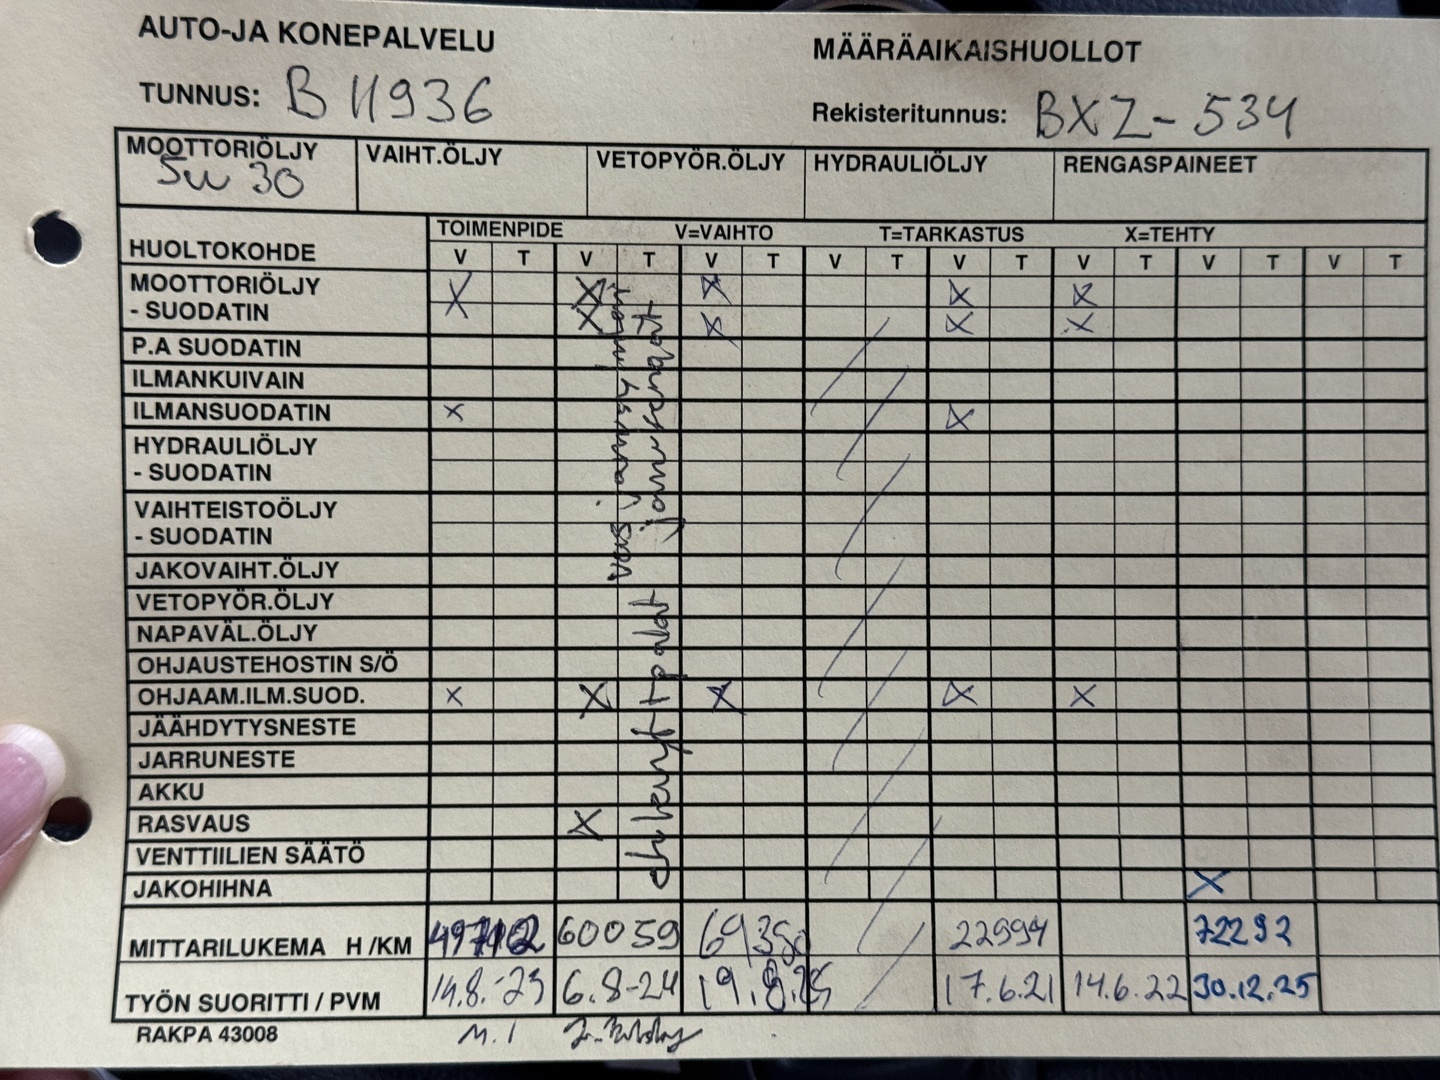 AUTO-JA KONEPALVELU
MÄÄRÄAIKAISHUOLLOT
TUNNUS: B 11936
Rekisteritunnus: BXZ-534
MOOTTORIÖLJY VAIHT.ÖLJY VETOPYÖR.ÖLJY HYDRAULIÖLJY RENGASPAINEET
5w 30
HUOLTOKOHDE TOIMENPIDE V=VAIHTO T=TARKASTUS X=TEHTY
V T V T V T V T V T V T V T V T
MOOTTORIÖLJY X X X X X
- SUODATIN X X X X
P.A SUODATIN
ILMANKUIVAIN
ILMANSUODATIN X X
HYDRAULIÖLJY
- SUODATIN
VAIHTEISTOÖLJY
- SUODATIN
JAKOVAIHT.ÖLJY
VETOPYÖR.ÖLJY
NAPAVÄL.ÖLJY
OHJAUSTEHOSTIN S/Ö
OHJAAM.ILM.SUOD. X X X X X
JÄÄHDYTYSNESTE
JARRUNESTE
AKKU
RASVAUS X
VENTTIILIEN SÄÄTÖ
JAKOHIHNA X
MITTARILUKEMA H /KM 60059 69350 22994 72292
TYÖN SUORITTI / PVM 14.8.-23 6.8-24 19.8.25 17.6.21 14.6.22 30.12.25
RAKPA 43008